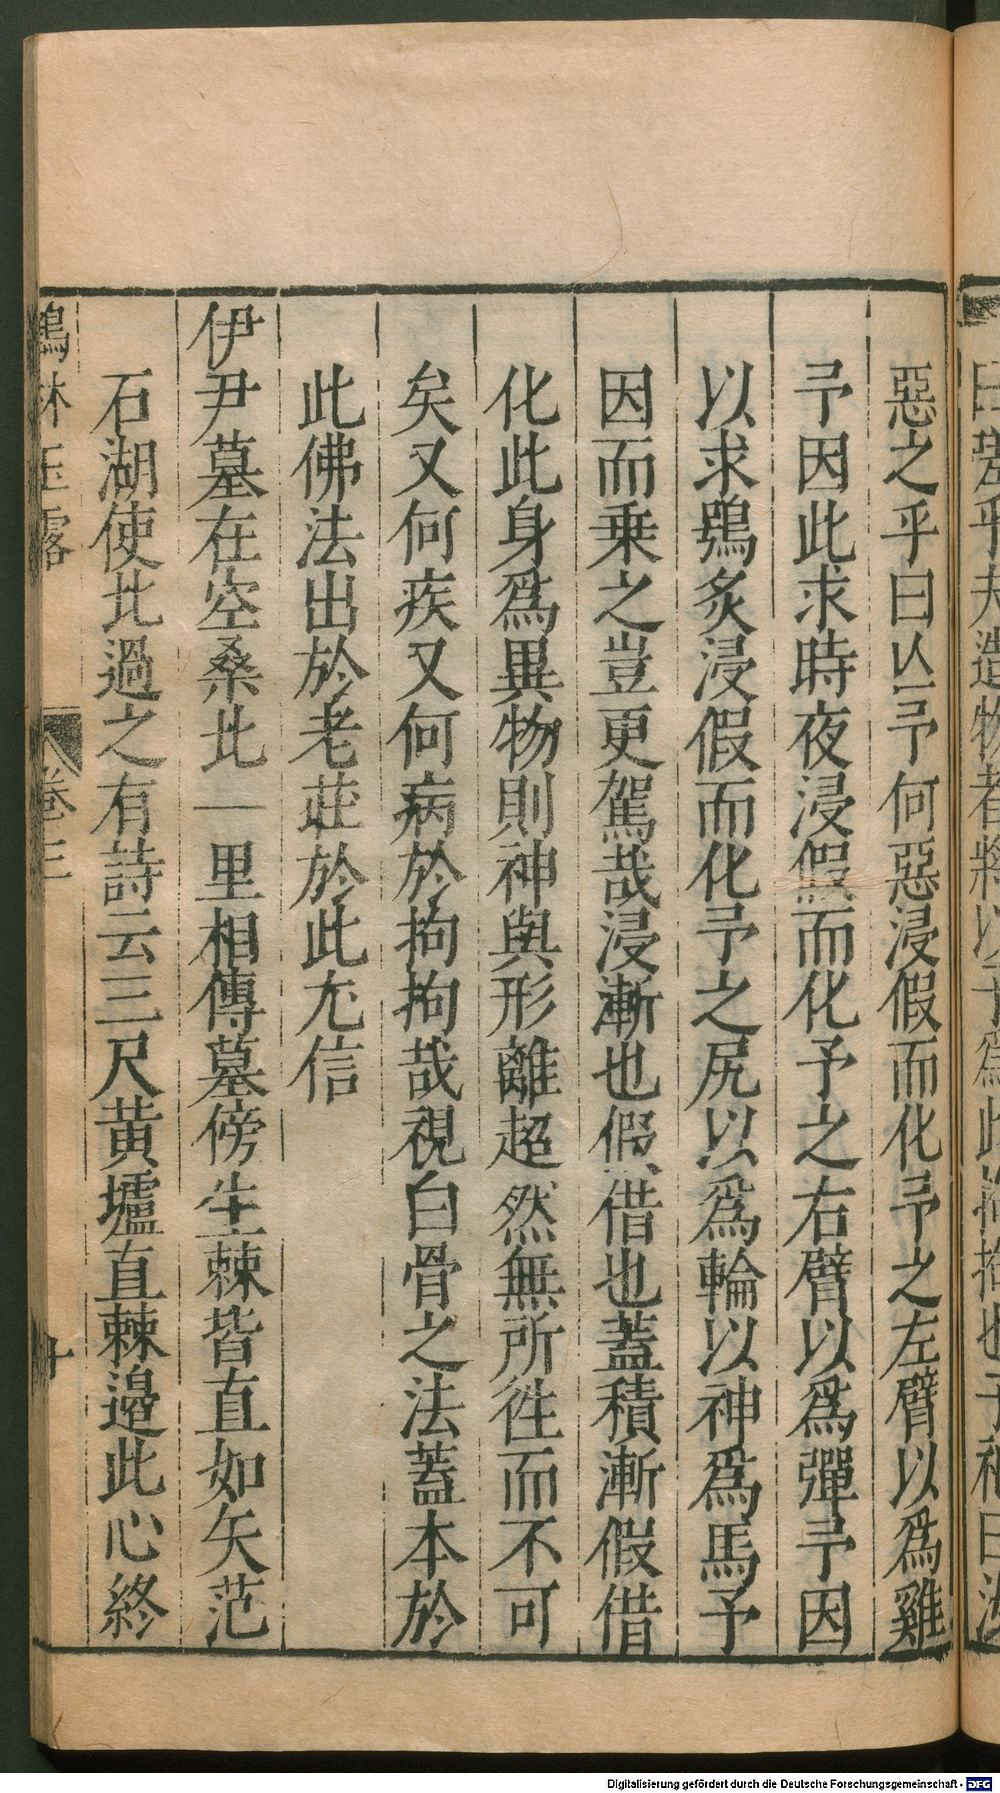 惡之乎曰亾予何惡浸假而化予之左臂以爲雞
予因此求時夜浸假而化予之右臂以爲彈予因
以求鴞炙浸假而化予之尻以爲輪以神爲馬予
因而乗之豈更駕哉浸漸也假借也蓋積漸假借
化此身爲異物則神與形離超然無所徃而不可
矣又何疾又何病於拘拘哉視白骨之法蓋本於
此佛法出於老莊於此尤信
伊尹墓在空桑北一里相傳墓傍生棘皆直如矢范
石湖使北過之有詩云三尺黄壚直棘邉此心終
鶴林玉露 卷三 十
Digitalisierung gefördert durch die Deutsche Forschungsgemeinschaft - DFG